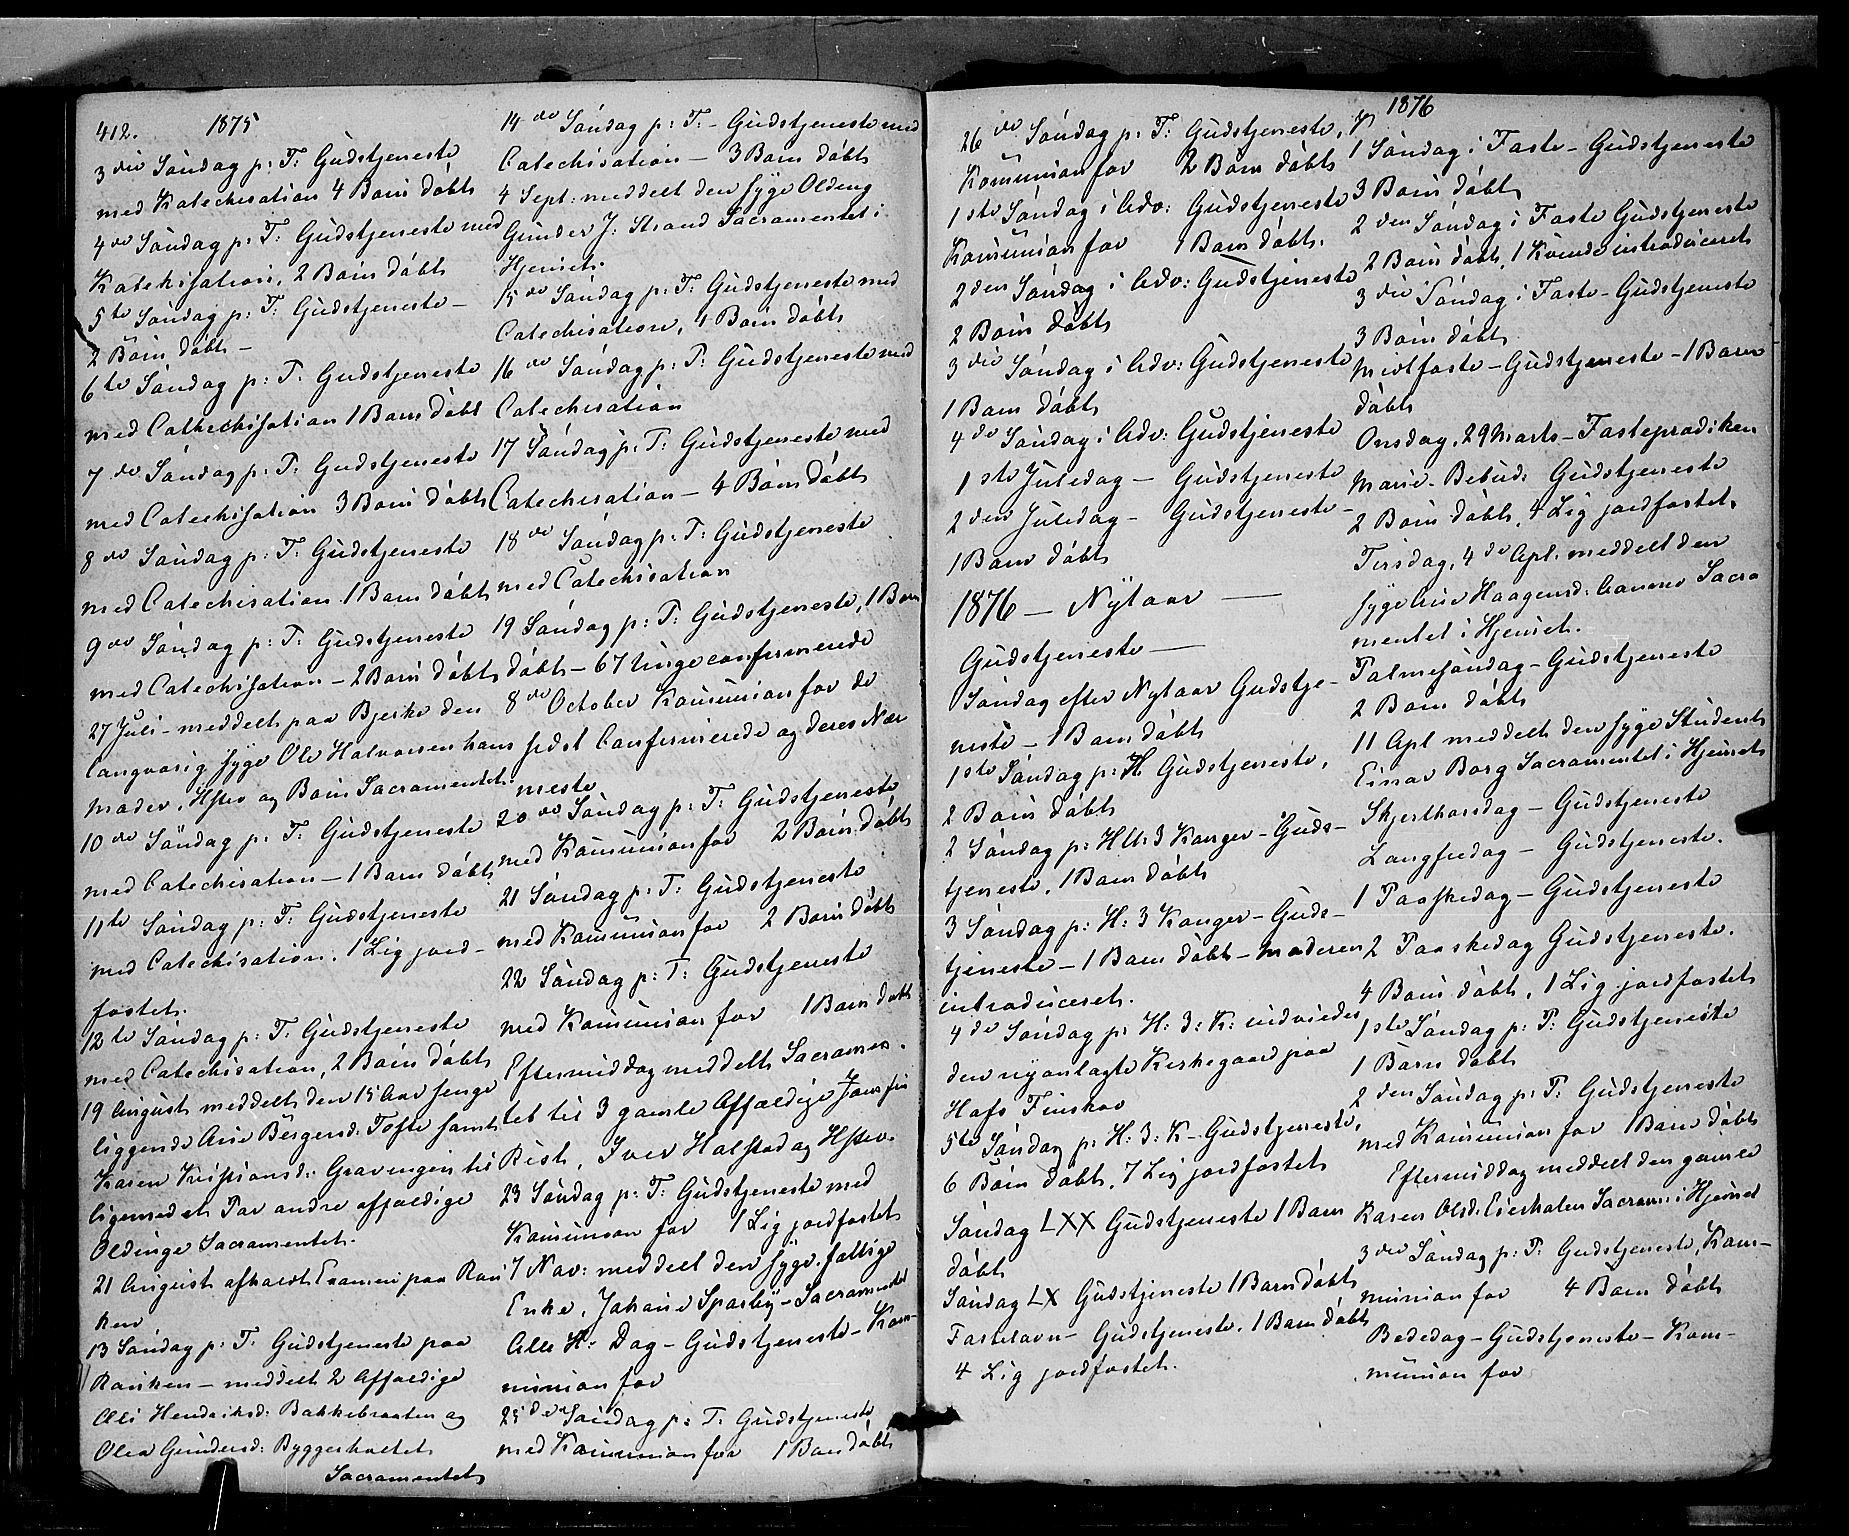 412. 1875
3die Søndag p: T: Gudstjeneste
med Katechisation 4 Børn døbt
4de Søndag p: T: Gudstjeneste med
Katechisation, 2 Børn døbt
5te Søndag p: T: Gudstjeneste –
2 Børn døbt –
6te Søndag p: T: Gudstjeneste
med Cathechisation 1 Barn døbt
7de Søndag p: T: Gudstjeneste
med Catechisation 3 Børn døbt
8de Søndag p: T: Gudstjeneste
med Catechisation 1 Barn døbt
9de Søndag p: T: Gudstjeneste
med Catechisation – 2 Børn døbt
27 Juli – meddelt paa Bjerke den
langvarig syge Ole Halvorsen hans
Moder, Hstru og Børn Sacramentet.
10de Søndag p: T: Gudstjeneste
med Catechisation – 1 Barn døbt
11te Søndag p: T: Gudstjeneste
med Catechisation. 1 Lig jord-
fæstet.
12te Søndag p: T: Gudstjeneste
med Catechisation, 2 Børn døbt
19 August meddelt den 15 Aar senge
liggende Ane Børgersd: Tofte samt
Karen Kristiansd: Gravingen til
ligemed et Par andre affældige
Oldinge Sacramentet.
21 August afholdt Examen paa Ran
ken
13 Søndag p: T: Gudstjeneste paa
Ranken – meddelt 2 Affældige
Oli Hendriksd: Bakkebraaten og
Olea Gundersd: Byggerholtet
Sacramentet
14de Søndag p: T: – Gudstjeneste med
Catechisation – 3 Børn døbt
4 Sept: meddelt den syge Olding
Gunder J: Strand Sacramentet i
Hjemet.
15de Søndag p: T: Gudstjeneste med
Catechisation, 1 Barn døbt
16de Søndag p: T: Gudstjeneste med
Catechisation
17 Søndag p: T: Gudstjeneste med
Catechisation – 4 Børn døbt
18de Søndag p: T: Gudstjeneste
med Catechisation
19 Søndag p: T: Gudstjeneste, 1 Barn
døbt – 67 Unge confirmerede
8de October Kommunion for de
sidst Confirmerede og deres Nær
meste
20de Søndag p: T: Gudstjeneste
med Kommunion for 2 Børn døbt
21 Søndag p: T: Gudstjeneste
med Kommunion for 2 Børn døbt
22 Søndag p: T: Gudstjeneste
med Kommunion for 1 Barn døbt
Eftermiddag meddelt Sacramen-
tet til 3 gamle Affældige
Rist, Iver Halstad og Hstru.
23 Søndag p: T: Gudstjeneste med
Kommunion for 1 Lig jordfæstet
7 Nov: meddelt den syge, fattige
Enke, Johane Sparby – Sacramentet
Alle H: Dag – Gudstjeneste – Kom-
munion for
25de Søndag p: T: Gudstjeneste
med Kommunion for 1 Barn døbt
26de Søndag p: T: Gudstjeneste,
Kommunion for 2 Børn døbt
1ste Søndag i Adv: Gudstjeneste
Kommunion for 1 Barn døbt.
2den Søndag i Adv: Gudstjeneste
2 Børn døbt
3die Søndag i Adv: Gudstjeneste
1 Barn døbt
4de Søndag i Adv: Gudstjeneste
1ste Juledag – Gudstjeneste
2den Juledag – Gudstjeneste –
1 Barn døbt
1876 – Nytaar –
Gudstjeneste –
Søndag efter Nytaar Gudstje-
neste – 1 Barn døbt
1ste Søndag p: H Gudstjeneste,
2 Børn døbt
2 Søndag p: Hll: 3 Konger – Guds-
tjeneste, 1 Barn døbt
3 Søndag p: H: 3 Konger – Guds-
tjeneste – 1 Barn døbt – Moderen
introduceret.
4de Søndag p: H: 3: K: indviedes
den nyanlagte Kirkegaard paa
Hofs Finskov
5te Søndag p: H: 3: K – Gudstjeneste,
6 Børn døbt, 7 Lig jordfæstet
Søndag LXX Gudstjeneste 1 Barn
døbt
Søndag LX Gudstjeneste 1 Barn døbt
Fastelavn – Gudstjeneste. 1 Barn døbt
4 Lig jordfæstet.
1876
1 Søndag i Faste – Gudstjeneste
3 Børn døbt
2den Søndag i Faste Gudstjeneste
2 Børn døbt, 1 Kvinde introduceret
3die Søndag i Faste – Gudstjeneste
3 Børn døbt
Midfaste – Gudstjeneste – 1 Barn
døbt
Onsdag, 29 Marts – Fasteprædiken
Marie-Bebud: Gudstjeneste
2 Børn døbt, 4 Lig jordfæstet.
Tirsdag, 4de Apl. meddelt den
syge Ane Haagensd: Sacra
mentet i Hjemet.
Palmesøndag – Gudstjeneste
2 Børn døbt
11 Apl meddelt den syge Student
Einar Borg Sacramentet i Hjemet
Skjærthorsdag – Gudstjeneste
Langfredag – Gudstjeneste.
1 Paaskedag – Gudstjeneste
2 Paaskedag Gudstjeneste.
4 Børn døbt, 1 Lig jordfæstet
1ste Søndag p: P: Gudstjeneste
1 Barn døbt
2den Søndag p: P: Gudstjeneste
med Kommunion for 1 Barn døbt
Eftermiddag meddelt den gamle
Karen Olsd: Sacram: i Hjemet
3die Søndag p: P: Gudstjeneste, Kom-
munion for 4 Børn døbt
Bededag – Gudstjeneste – Kom-
munion for